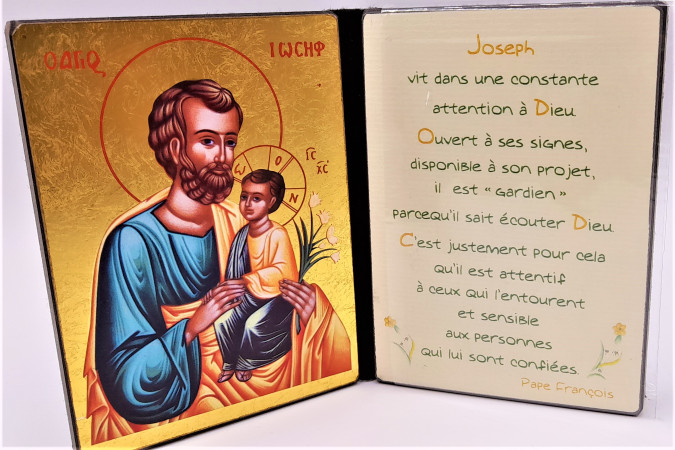 Ο ΑΓΙΟς
ΙΩCΗΦ
Ω Ο Ν
ΙC
ΧC
Joseph
vit dans une constante
attention à Dieu.
Ouvert à ses signes,
disponible à son projet,
il est "gardien"
parcequ'il sait écouter Dieu.
C'est justement pour cela
qu'il est attentif
à ceux qui l'entourent
et sensible
aux personnes
qui lui sont confiées.
Pape François